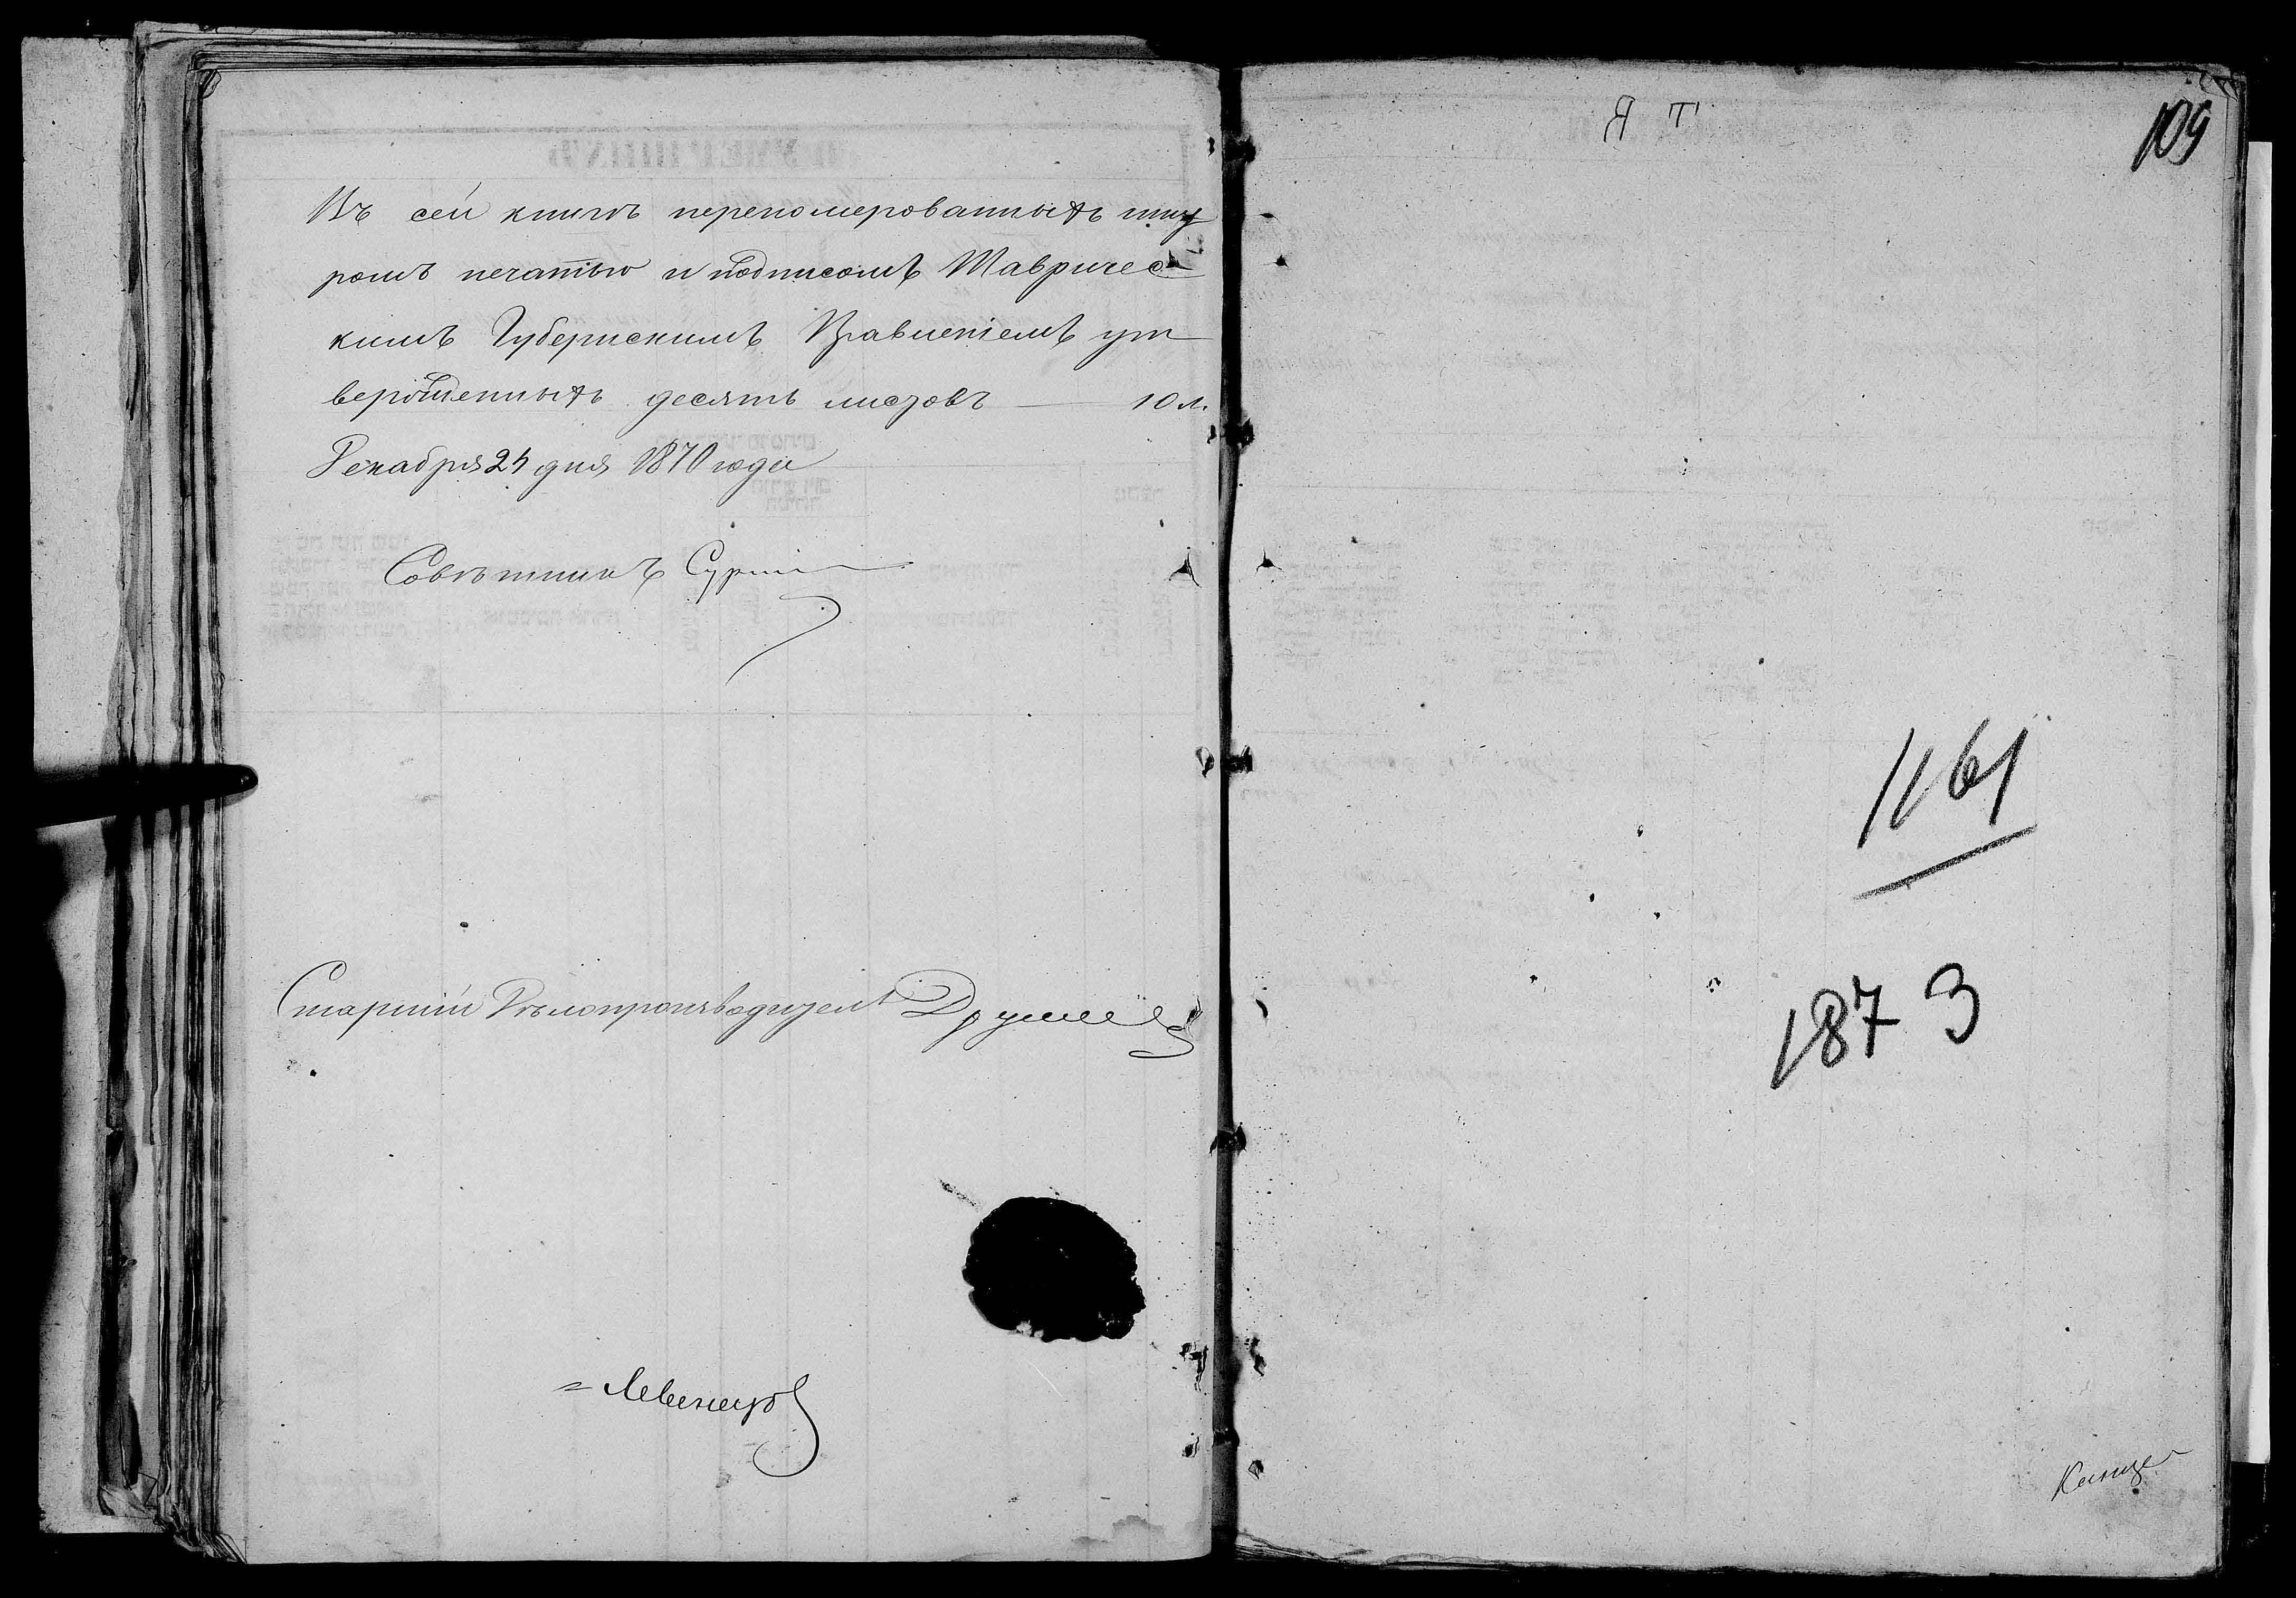 Въ сей книгѣ перепомерованныхъ шну
ромъ печатью и подписомъ Тавричес
кимъ Губернскимъ Правленіемъ ут
вержденныхъ десять листовъ — 10 л.
Декабря 24 дня 1870 года
Совѣтникъ
Старшій Дѣлопроизводитель
Я Т
109
1161
187 3